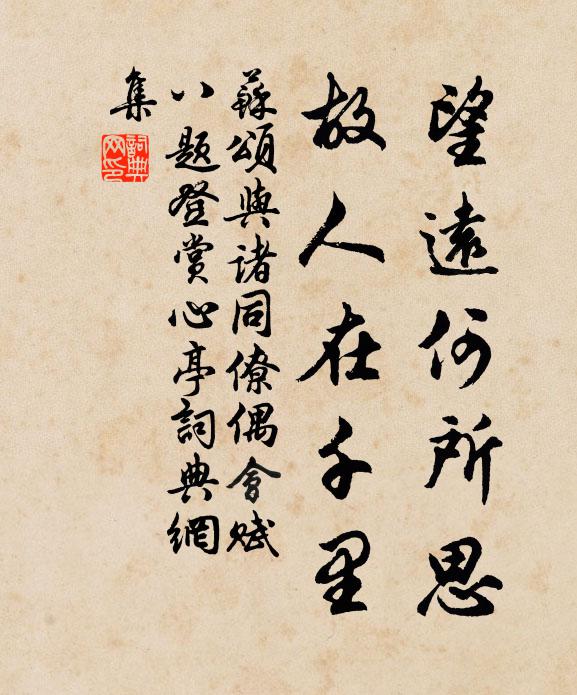 望遠何所思
故人在千里
蘇頌與諸同僚偶會賦
八題登賞心亭詞典網
集
詞典網印